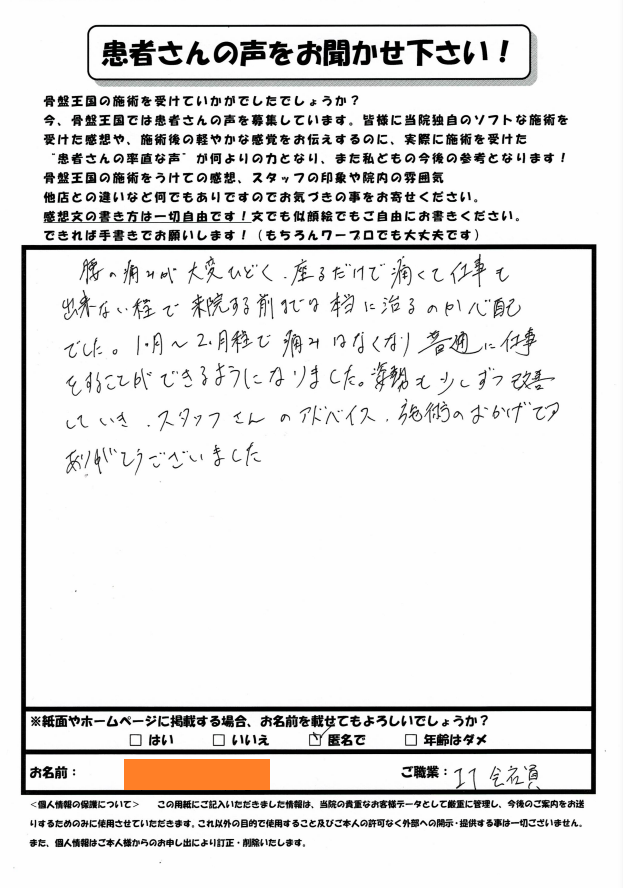 患者さんの声をお聞かせ下さい！
骨盤王国の施術を受けていかがでしたでしょうか？
今、骨盤王国では患者さんの声を募集しています。皆様に当院独自のソフトな施術を
受けた感想や、施術後の軽やかな感覚をお伝えするのに、実際に施術を受けた
“患者さんの率直な声”が何よりの力となり、また私どもの今後の参考となります！
骨盤王国の施術をうけての感想、スタッフの印象や院内の雰囲気
他店との違いなど何でもありですのでお気づきの事をお寄せください。
感想文の書き方は一切自由です！文でも似顔絵でもご自由にお書きください。
できれば手書きでお願いします！（もちろんワープロでも大丈夫です）
腰の痛みが大変ひどく、座るだけで痛くて仕事も
出来ない程で来院する前までは本当に治るのか心配
でした。1ヶ月～2ヶ月程で痛みはなくなり普通に仕事
をすることができるようになりました。姿勢も少しずつ改善
していき、スタッフさんのアドバイス、施術のおかげです
ありがとうございました
※紙面やホームページに掲載する場合、お名前を載せてもよろしいでしょうか？
□ はい □ いいえ ☑ 匿名で □ 年齢はダメ
お名前：
ご職業：IT 会社員
＜個人情報の保護について＞ この用紙にご記入いただきました情報は、当院の貴重なお客様データとして厳重に管理し、今後のご案内をお送
りするためのみに使用させていただきます。これ以外の目的で使用すること及びご本人の許可なく外部への開示・提供する事は一切ございません。
また、個人情報はご本人様からのお申し出により訂正・削除いたします。